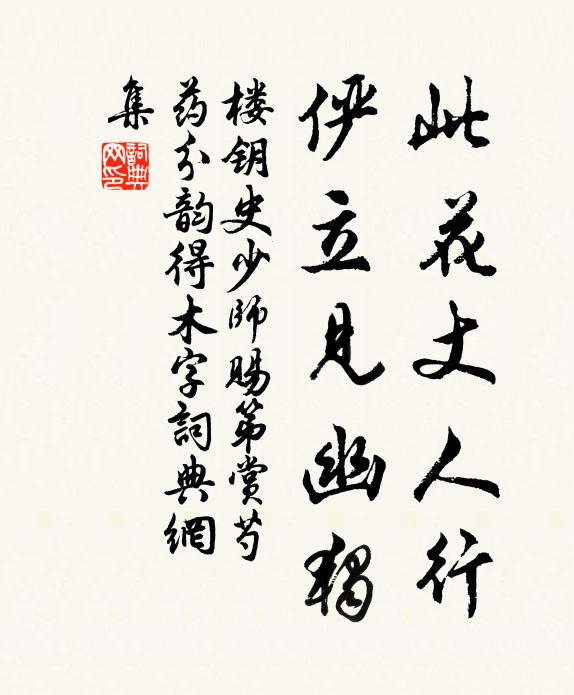 此花丈人行
俨立见幽独
楼钥史少師赐第赏芍
药分韵得木字詞典網
集
詞典网印